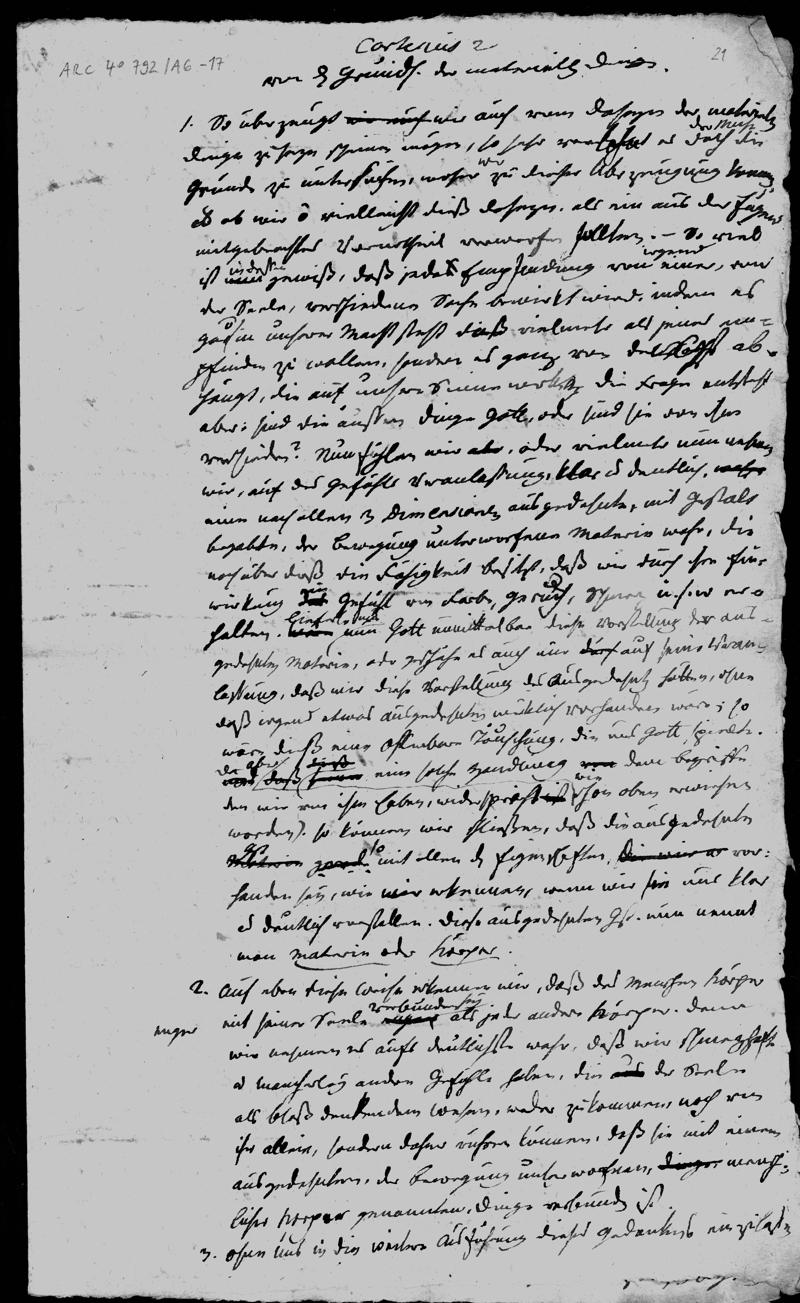 ARC 4° 792/A6-17
Cartesius 2
21
von d Grunds. der materiell Dinge.
1. So überzeugt wir auch vom Daseyn der materiellen
Dinge zu seyn scheinen mögen, so sehr es doch die
der Mühe
Gründe zu untersuchen, woher wir zu dieser Überzeugung
ob wir vielleicht dieß Daseyn als ein aus der Jugend
mitgebrachtes Vorurtheil verwerfen sollten. – So viel
ist indessen gewiß, daß jede Empfindung von irgend einer, von
der Seele, verschiedene Sache bewirkt wird, indem es
gar in unserer Macht steht dieß vielmehr als jenes em=
pfinden zu wollen, sondern es ganz von der Sache ab=
hängt, die auf unsere Sinne wirkt. die Frage entsteht
aber: sind die äussern Dinge Gott, oder sind sie von ihm
verschieden? Nun fühlen wir, oder vielmehr nun nehmen
wir, auf des Gefühls Veranlassung, klar u deutlich,
eine nach allen 3 Dimensionen ausgedehnte, mit Gestalt
begabte, der Bewegung unterworfene Materie wahr, die
noch über dieß die Fähigkeit besitzt, daß wir durch ihre Ein=
wirkung Gefühl von Farbe, Geruch, Schmerz u.s.w er=
halten. nun Gott unmittelbar diese Vorstellung der aus=
gedehnten Materie, oder geschähe es auch nur auf seine Veran=
lassung, daß wir diese Vorstellung des Ausgedehnten hätten, ohne
daß irgend etwas ausgedehntes wirklich vorhanden wäre; so
wäre dieß eine offenbare Täuschung, die uns Gott spielte.
da aber eine solche Handlung dem Begriffe
den wir von ihm haben, widerspricht (wie schon oben erwiesen
worden). so können wir schließen, daß die ausgedehnte
mit allen d Eigenschaften, vor=
handen sey, wie wir erkennen, wenn wir sie uns klar
u deutlich vorstellen. Diese ausgedehnten nun nennt
man Materie oder Körper.
2. Auf eben diese Weise erkennen wir, daß des Menschen Körper
enger
mit seiner Seele verbunden sey als jeder andere Körper. denn
wir nehmen es aufs deutlichste wahr, daß wir schmerzhafte
u mancherley andere Gefühle haben, die der Seele
als bloß denkendem Wesen, weder zukommen, noch von
ihr allein, sondern daher rühren können, daß sie mit einem
ausgedehnten, der Bewegung unterworfenen, mensch=
licher Körper genannten, Dinge verbunden ist.
3. Ohne uns in die weitere Ausführung dieses Gedankens einzulassen